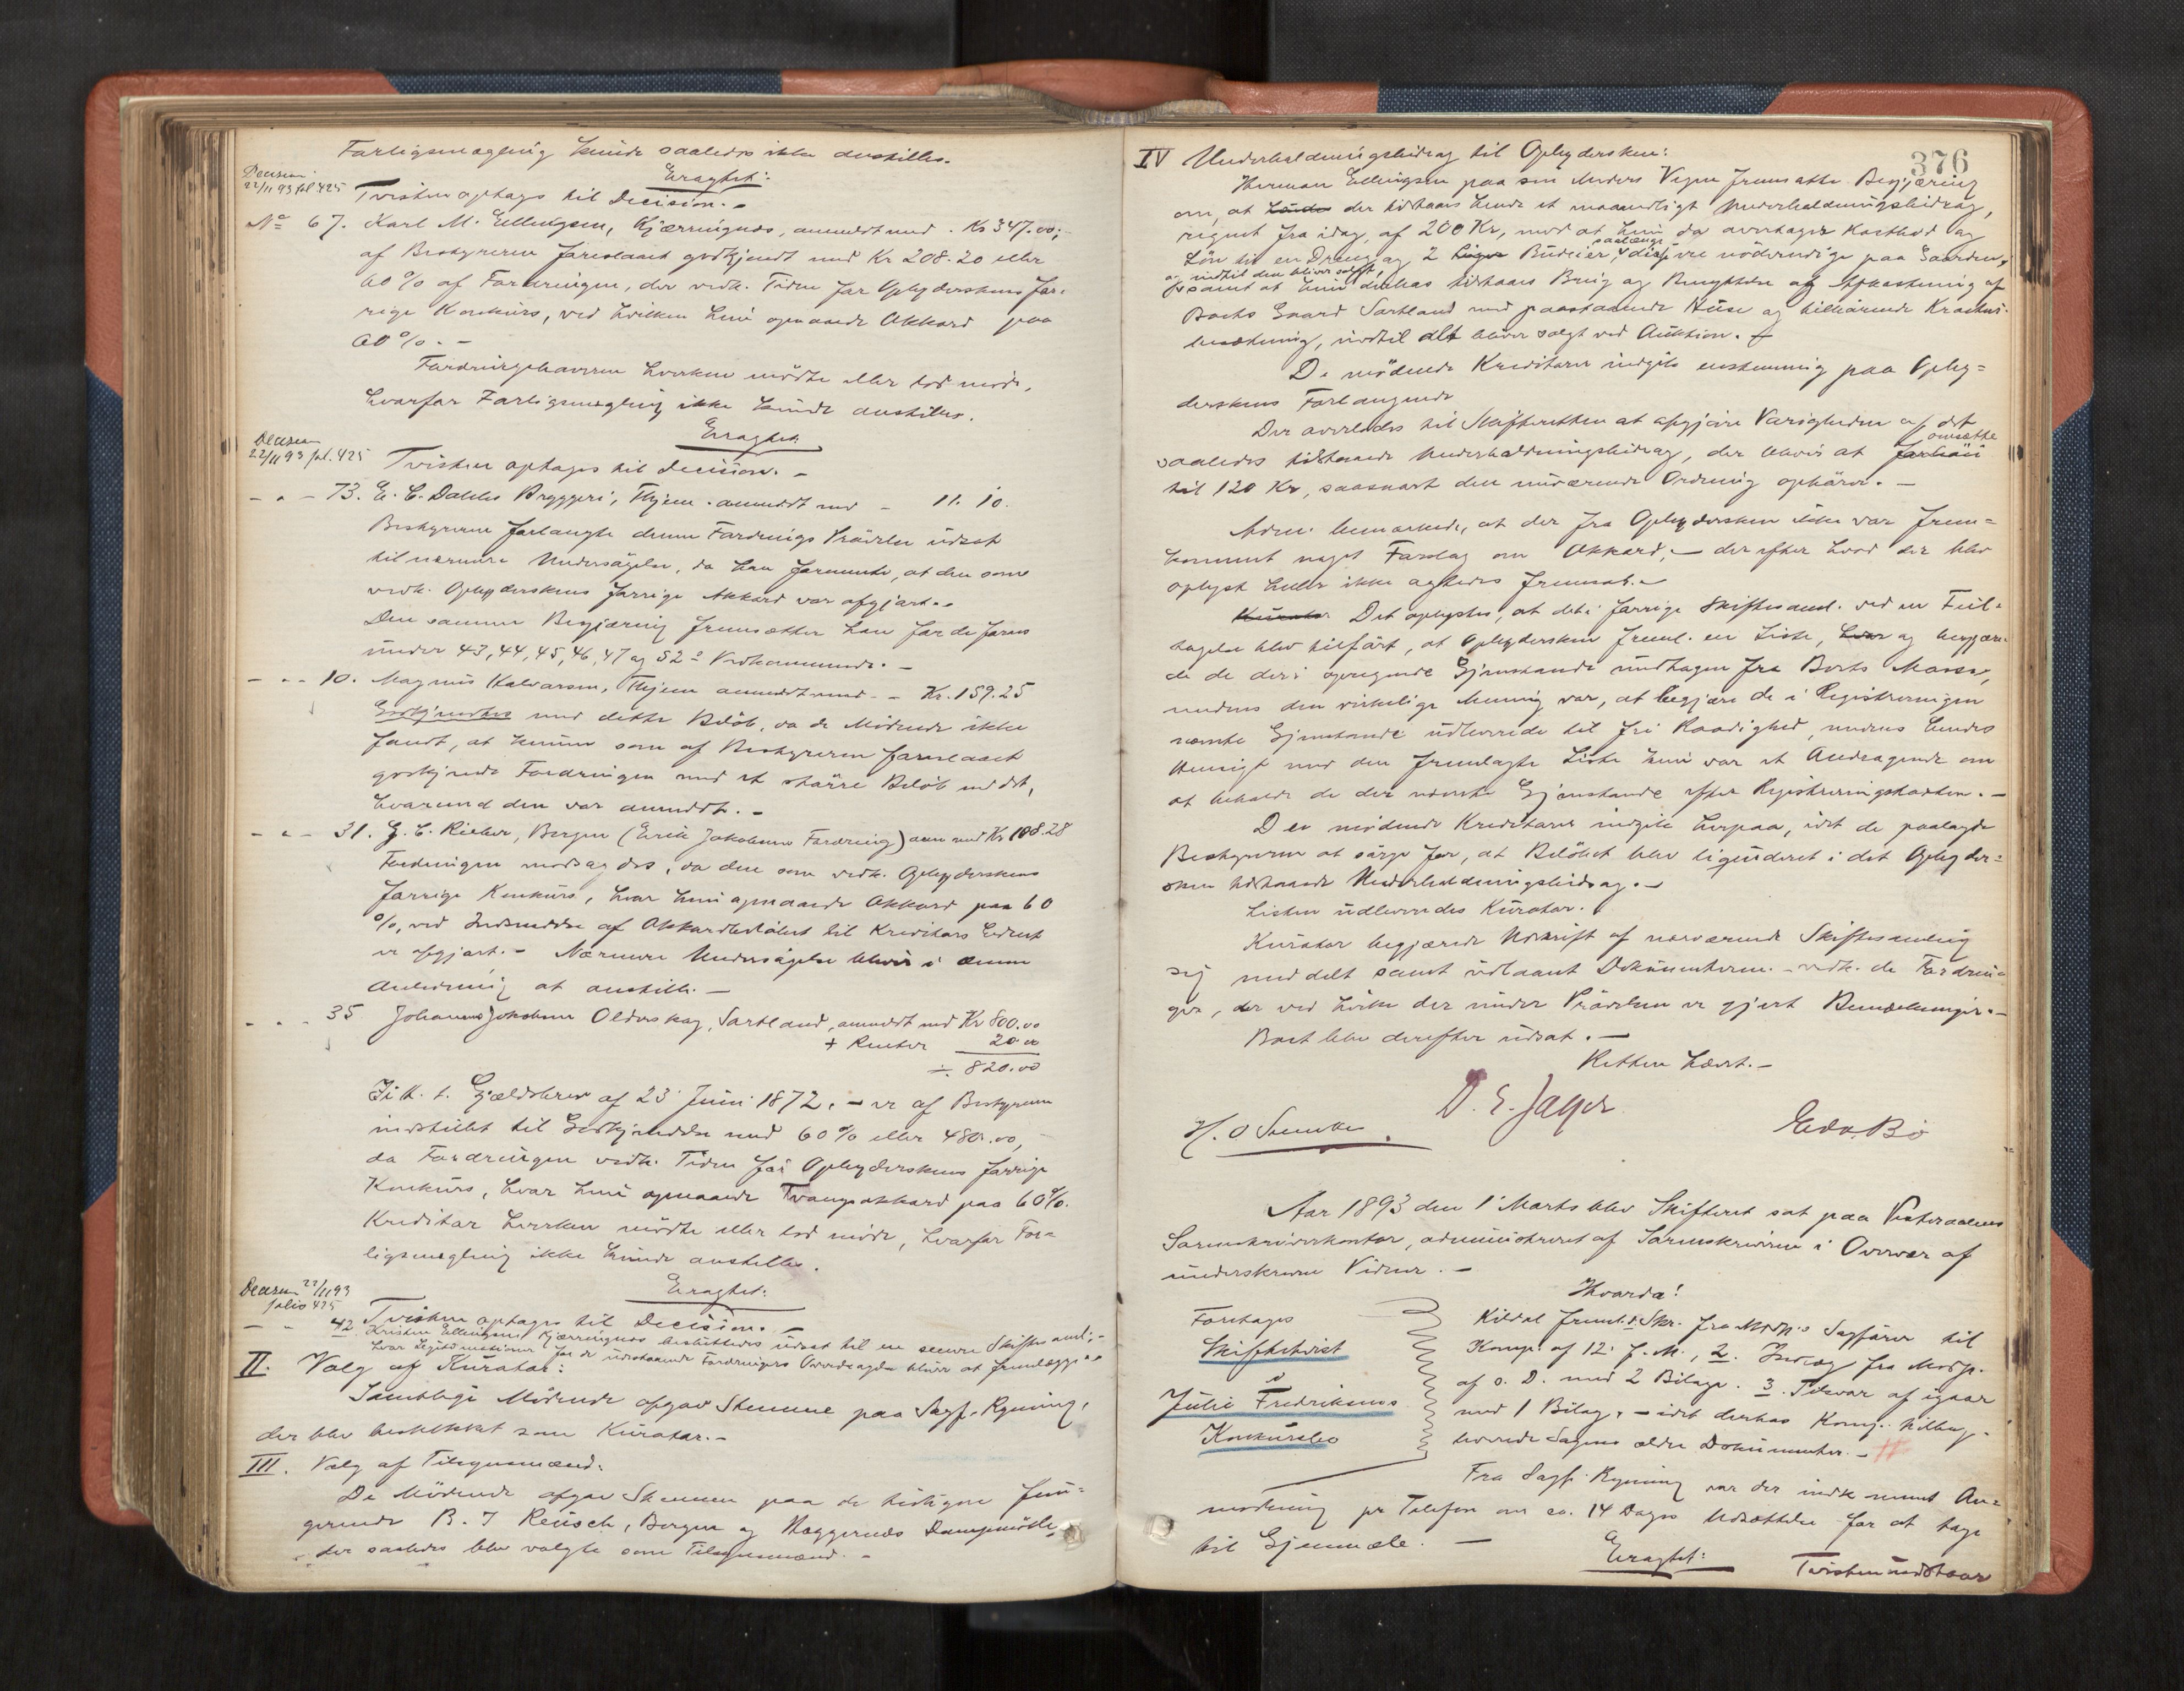 Forligsmægling kunde saaledes ikke anstilles.
Eragtet:
Decision
22/11 93 fol 425
Tvisten optages til Decision. -
No 67. Karl M. Ellingsen, Kjærringnes, anmeldt med . Kr 347.00;
af Bestyreren foreslaaet godkjendt med Kr 208.20 eller
60 % af Fordringen, der vedk. Tiden før Opbyderskens for-
rige Konkurs, ved hvilken hun opnaaede Akkord paa
60 %. -
Fordringshaveren hverken mødte eller lod møde,
hvorfor Forligsmægling ikke kunde anstilles.
Eragtet
Decision
22/11 93 fol. 425
Tvisten optages til Decision. -
- " - 73. E. C. Dahls Bryggeri, Thjem. anmeldt med - 11. 10.
Bestyreren forlangte denne Fordrings Prøvelse udsat
til nærmere Undersøgelse, da han formente, at den som
vedk. Opbyderskens forrige Akkord var afgjort. -
Den samme Begjæring fremsætter han for de foran
under 43, 44, 45, 46, 47 og 52 Vedkommende. -
- " - 10. Magnus Halvorsen, Thjem anmeldt med - - Kr. 159.25
Godkjendtes med dette Beløb, da de Mødende ikke
fandt, at kunne som af Bestyreren foreslaaet
godkjende Fordringen med et større Beløb end det,
hvormed den var anmeldt. -
- " - 31. G. C. Rieber, Bergen (Erik Jakobsens Fordring) anm med Kr 108.28
Fordringen modsagdes, da den som vedk. Opbyderskens
forrige Konkurs, hvor hun opnaaede Akkord paa 60
%, ved Indsendelse af Akkordbeløbet til Kreditor
er afgjort. - Nærmere Undersøgelse bliver i denne
Anledning at anstille. -
- " - 35 Johannes Jakobsen Olderskog, Sortland, anmeldt med Kr 800.00
+ Renter 20.00
÷ 820.00
I H. t. Gjældsbrev af 23 Juni 1872. - er af Bestyreren
indstillet til Godkjendelse med 60 % eller 480.00,
da Fordringen vedk. Tiden før Opbyderskens forrige
Konkurs, hvor hun opnaaede Tvangsakkord paa 60%.
Kreditor hverken mødte eller lod møde, hvorfor For-
ligsmægling ikke kunde anstilles.
Decision 22/11 93
folio 425
Eragtet:
Tvisten optages til Decision. -
- " 42 Kristen Ellingsen, Kjærringnes besluttedes udsat til en senere Skiftesaml; -
hvor Legitimationer for de udestaaende Fordringers Overdragelse bliver at fremlægge. -
II. Valg af Kurator:
Samtlige Mødende afgav Stemme paa Sagf. Rynning,
der blev beskikket som Kurator. -
III. Valg af Tilsynsmænd.
De Mødende afgav Stemmen paa de hidtigen fun-
gerende B. J Reusch, Bergen og Vaggernes Dampmølle,
der saaledes blev valgte som Tilsynsmænd. -
376
IV Underholdningsbidrag til Opbydersken:
Herman Ellingsen paa sin Moders Vegne fremsatte Begjæring
om, at der tilstaaes hende et maanedligt Underholdningsbidrag,
regnet fra idag, af 200 Kr, mod at hun da overtager Kosthold og
Løn til en Dreng og 2 Budeier, saalænge disse ere nødvendige paa Gaarden,
og indtil den bliver solgt,
samt at hun derhos tilstaaes Brug og Benyttelse og Afkastning af
Boets Gaard Sortland med paastaaende Huse og tilhørende Kreatur-
besætning, indtil alt bliver solgt ved Auktion.
De mødende Kreditorer indgik enstemmig paa Opby-
derskens Forlangende
Der overlodes til Skifteretten at afgjøre Varigheden af det
omsætte
saaledes tilstaaede Underholdningsbidrag, der bliver at
til 120 Kr, saasnart den nuværende Ordning ophører. -
Adm. bemærkede, at der fra Opbydersken ikke var frem-
kommet noget Forslag om Akkord; - der efter hvad der blev
oplyst heller ikke agtedes fremsat. -
Kurator Det oplystes, at det i forrige Skiftesaml. ved en Feil-
tagelse blev tilført, at Opbydersken freml. en Liste, og begjære-
de de deri opregnede Gjenstande undtagen fra Boets Masse,
medens den virkelige Mening var, at begjære de i Registreringen
nævnte Gjenstande udleverede til fri Raadighed, medens hendes
Hensigt med den fremlagte Liste kun var et Andragende om
at beholde de der nævnte Gjenstande efter Registreringstaxten. -
De mødende Kreditorer indgik herpaa, idet de paalagde
Bestyreren at sørge for, at Beløbet blev ligvideret i det Opbyder-
sken tilstaaede Underholdningsbidrag. -
Listen udleveredes Kurator.
Kurator begjærede Udskrift af nærværende Skiftesamling
sig meddelt samt udlaant Dokumenterne - vedk. de Fordrin-
ger, der ved hvilke der under Prøvelsen er gjort Bemærkninger. -
Boet blev derefter udsat. -
Retten hævet. -
D. E. Jager
Edv. Bø
Aar 1893 den 1 Marts blev Skifteret sat paa Vesteraalens
Sorenskriverkontor, administreret af Sorenskriveren i Overvær af
underskrevne Vidner. -
Hvorda!
Foretages
Skiftetvist
i
Julie Fredriksens
Konkursbo
Kildal freml. 1. Skr. fra Modp.s Sagfører til
Komp. af 12. f. M., 2. Indlæg fra Modp.
af s. D. med 2 Bilage. 3. Tilsvar af igaar
med 1 Bilag. - idet derhos Komp. tilbage-
leverede Sagens ældre Dokumenter. -
Fra Sagf. Rynning var der indkommet An-
modning pr Telefon om ca. 14 Dages Udsættelse for at tage
til Gjenmæle. -
Eragtet:
Tvisten udstaar